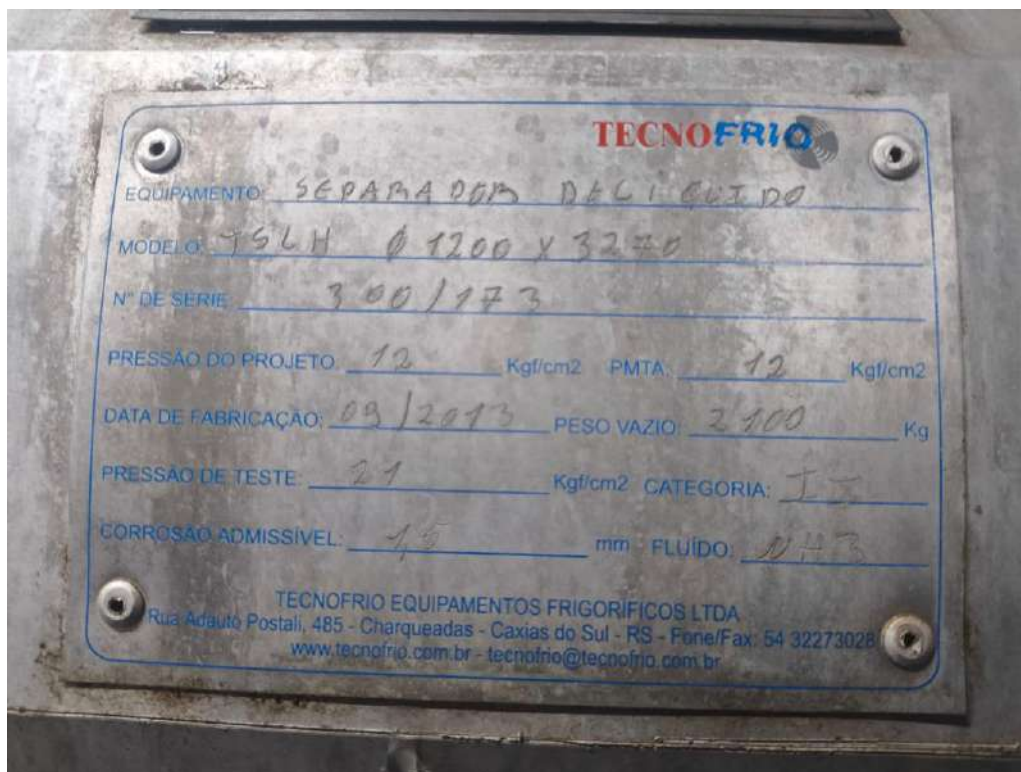 TECNOFRIO
EQUIPAMENTO: SEPARADOR DE LIQUIDO
MODELO: TSLH Ø 1200 X 3270
N° DE SÉRIE: 300/173
PRESSÃO DO PROJETO: 12 Kgf/cm2 PMTA: 12 Kgf/cm2
DATA DE FABRICAÇÃO: 09/2013 PESO VAZIO: 2100 Kg
PRESSÃO DE TESTE: 21 Kgf/cm2 CATEGORIA: II
CORROSÃO ADMISSÍVEL: 1,5 mm FLUÍDO: NH3
TECNOFRIO EQUIPAMENTOS FRIGORÍFICOS LTDA
Rua Adauto Postali, 485 - Charqueadas - Caxias do Sul - RS - Fone/Fax: 54 32273028
www.tecnofrio.com.br - tecnofrio@tecnofrio.com.br